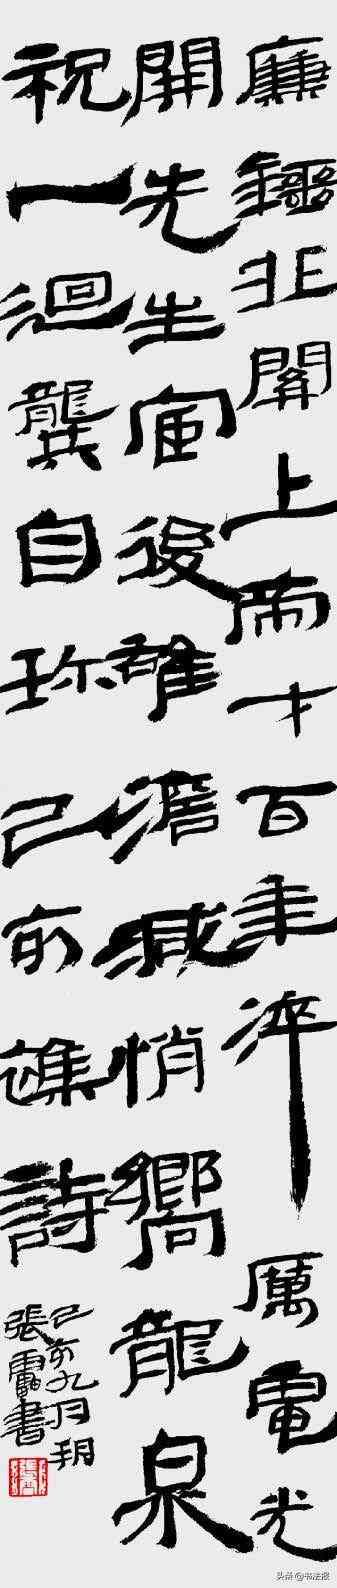 廉鍔非關上帝才百年淬厲電光
開先生宦後雄澹減悄嚮龍泉
祝一迴龔自珍己亥雜詩
己亥九月
張靁書
头条@书法报